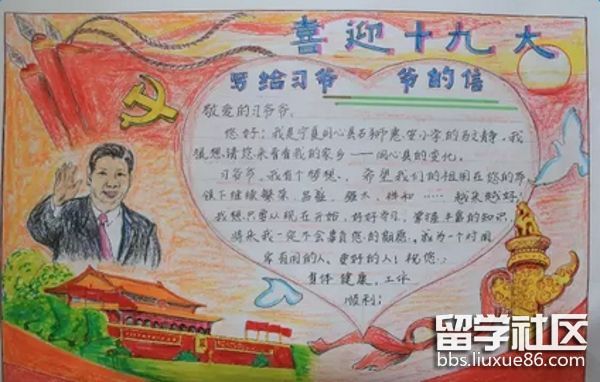 喜迎十九大
写给习爷爷的信
敬爱的习爷爷:
您好!我是宁夏同心县石狮惠安小学的马文静,我
很想请您来看看我的家乡——同心县的变化。
习爷爷,我有个梦想,希望我们的祖国在您的带
领下继续繁荣、昌盛、强大、祥和……越来越好,
我想只要从现在开始,好好学习,掌握丰富的知识,
将来我一定不会辜负您的期愿,成为一个对国
家有用的人、更好的人!祝您:
身体健康,工作
顺利!
留学社区
bbs.liuxue86.com